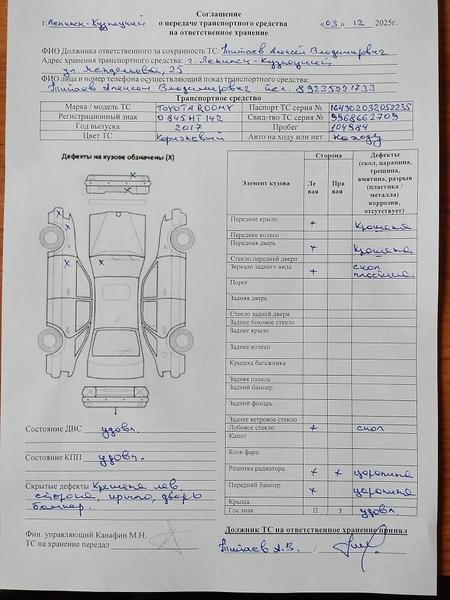 Соглашение
г. Ленинск-Кузнецкий о передаче транспортного средства «03» 12 2025г.
на ответственное хранение
ФИО Должника ответственного за сохранность ТС: Титаев Алексей Владимирович
Адрес хранения транспортного средства: г. Ленинск-Кузнецкий
ул. 25
ФИО лица и номер телефона осуществляющий показ транспортного средства:
Титаев Алексей Владимирович тел. 89235221733
Транспортное средство
Марка / модель ТС TOYOTA ROOMY Паспорт ТС серия № 164302032052235
Регистрационный знак О 845 НТ 142 Свид-тво ТС серия № 9968662709
Год выпуска 2017 Пробег 104984
Цвет ТС Коричневый Авто на ходу или нет На ходу
Дефекты на кузове обозначены (X)
Элемент кузова Сторона Дефекты (скол, царапина, трещина, вмятина, разрыв (пластика / металла) коррозия, отсутствует)
Ле вая Пра вая
Переднее крыло + Крашена
Переднее колесо
Передняя дверь + Крашена
Стекло передней двери
Зеркало заднего вида + скол пластика
Порог
Задняя дверь
Стекло задней двери
Заднее боковое стекло
Заднее крыло
Заднее колесо
Крышка багажника
Задняя панель
Задний бампер
Задний фонарь
Заднее ветровое стекло
Лобовое стекло + скол
Капот
Блок фара
Решетка радиатора + + царапина
Передний бампер × царапина
Крыша
Гос.знак П З удовл.
Состояние ДВС удовл.
Состояние КПП удовл.
Скрытые дефекты Крашена лев.
сторона, крыло, дверь
бампер.
Фин. управляющий Канафин М.Н.
ТС на хранение передал
Должник ТС на ответственное хранение принял
Титаев А.В. /